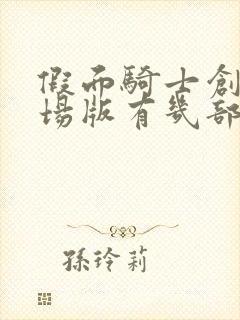 假而騎士創
場版有幾部
孫玲莉